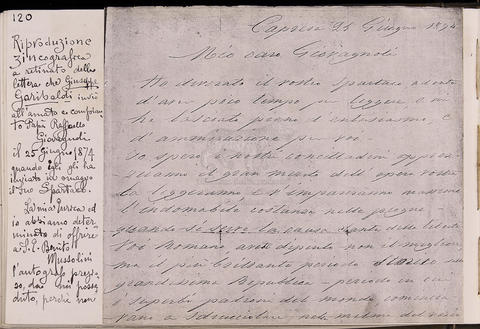 120
Riproduzione
zincografica
a retinato della
lettera che Giuseppe
Garibaldi inviò
all'amato e compianto
Papà Raffaello
Giovagnoli
il 25 Giugno 1874
quando egli gli ha
inviato in omaggio
il suo Spartaco.
La mia
ed
io abbiamo deter
minato di offrire
a S. E. Benito
Mussolini
l'autografo prezio
so, da noi posse
duto, perché non
Caprera 25 Giugno 1874
Mio caro Giovagnoli
Ho divorato il vostro Spartaco ad onta
d'aver poco tempo per leggere e m'
ha lasciato pieno d'entusiasmo, e
d'ammirazione per voi.
Io spero i nostri concittadini apprez-
zeranno il gran merito dell'opera vostra
la leggeranno, e v'impareranno
l'indomabile costanza nelle pugne
quando si serve la causa santa della libertà
Voi Romano avete dipinto non il migliore
ma il più brillante periodo storico della
grandissima Repubblica - periodo in cui
i superbi padroni del mondo comincia
vano a sdrucciolare nel